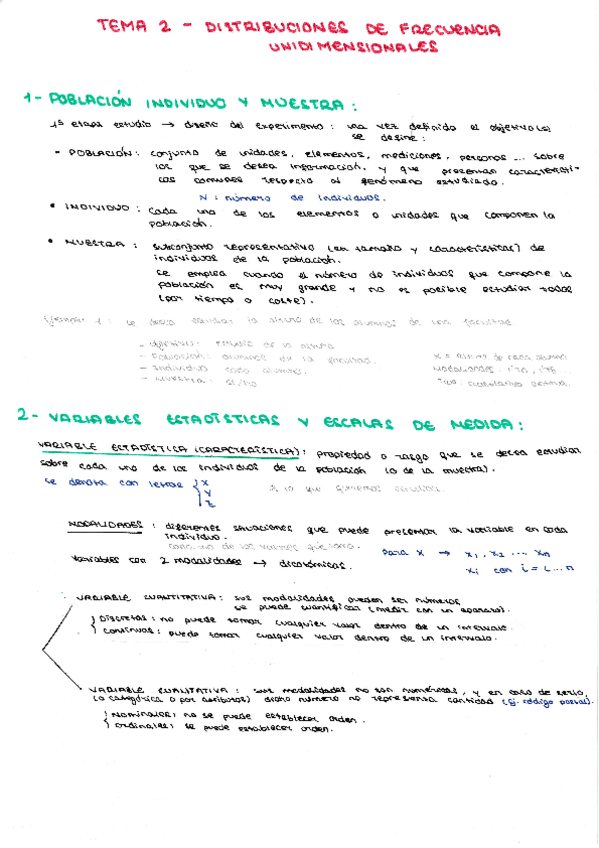 TEMA 2 - DISTRIBUCIONES DE FRECUENCIA
UNIDIMENSIONALES
1- POBLACIÓN INDIVIDUO Y MUESTRA:
1ª etapa estudio → diseño del experimento: una vez definido el objetivo(s)
se define:
- POBLACIÓN: conjunto de unidades, elementos, mediciones, personas ... sobre
los que se desea información, y que presentan característi-
cas comunes respecto al fenómeno estudiado.
N: número de individuos.
• INDIVIDUO: cada uno de los elementos o unidades que componen la
población.
• MUESTRA: subconjunto representativo (en tamaño y características) de
individuos de la población.
se emplea cuando el número de individuos que compone la
población es muy grande y no es posible estudiar todos
(por tiempo o coste).
Ejemplo 1: se desea estudiar la altura de los alumnos de una facultad
- Objetivo: estudio de la altura
- Población: alumnos de la facultad. X = altura de cada alumno
- Individuo: cada alumno. Modalidades: 1'70, 1'75...
- Muestra: si/no Tipo: cuantitativa continua.
2- VARIABLES ESTADÍSTICAS Y ESCALAS DE MEDIDA:
VARIABLE ESTADÍSTICA (CARACTERÍSTICA): propiedad o rasgo que se desea estudiar
sobre cada uno de los individuos de la población (o de la muestra).
se denota con letras { X
Y lo que queremos estudiar.
Z
MODALIDADES: diferentes situaciones que puede presentar la variable en cada
individuo.
cada uno de los valores que toma. para X → x1, x2 ... xn
Variables con 2 modalidades → dicotómicas. xi con i = 1...n
- VARIABLE CUANTITATIVA: sus modalidades pueden ser números,
se puede cuantificar (medir con un aparato).
} Discretas: no puede tomar cualquier valor dentro de un intervalo.
} continuas: puede tomar cualquier valor dentro de un intervalo.
- VARIABLE CUALITATIVA: sus modalidades no son numéricas, y en caso de serlo,
(o categórica o por atributos) dicho número no representa cantidad (Ej. código postal).
} Nominales: no se puede establecer orden.
} ordinales: se puede establecer orden.